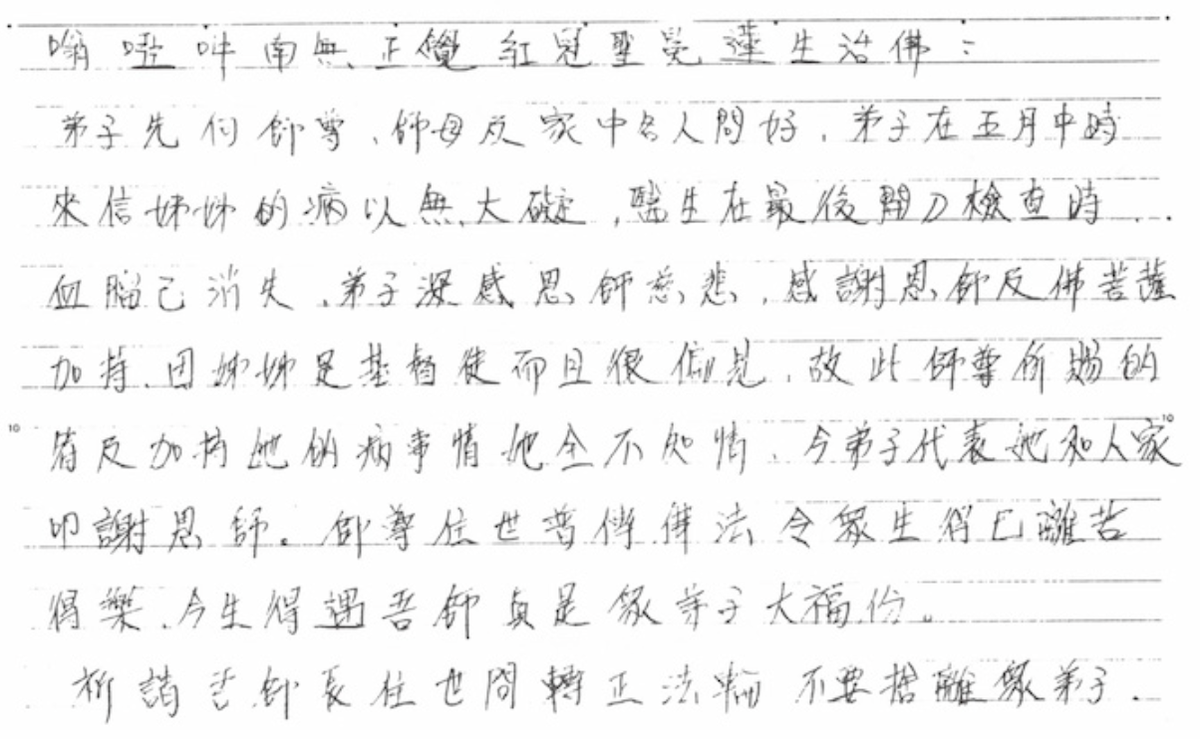 嗡啞吽南無正覺紅冠聖冕蓮生活佛：
弟子先向師尊、師母及家中各人問好，弟子在五月中時
來信姊姊的病以無大礙，醫生在最後開刀檢查時，
血腦己消失，弟子深感恩師慈悲，感謝恩師及佛菩薩
加持，因姊姊是基督徒而且很偏見，故此師尊所賜的
符及加持她的病事情她全不知情，今弟子代表她和人家
叩謝恩師。師尊住世普傳佛法令眾生得已離苦
得樂，今生得遇吾師真是眾弟子大福份。
祈請吾師長住世間轉正法輪 不要捨離眾弟子.
10
10